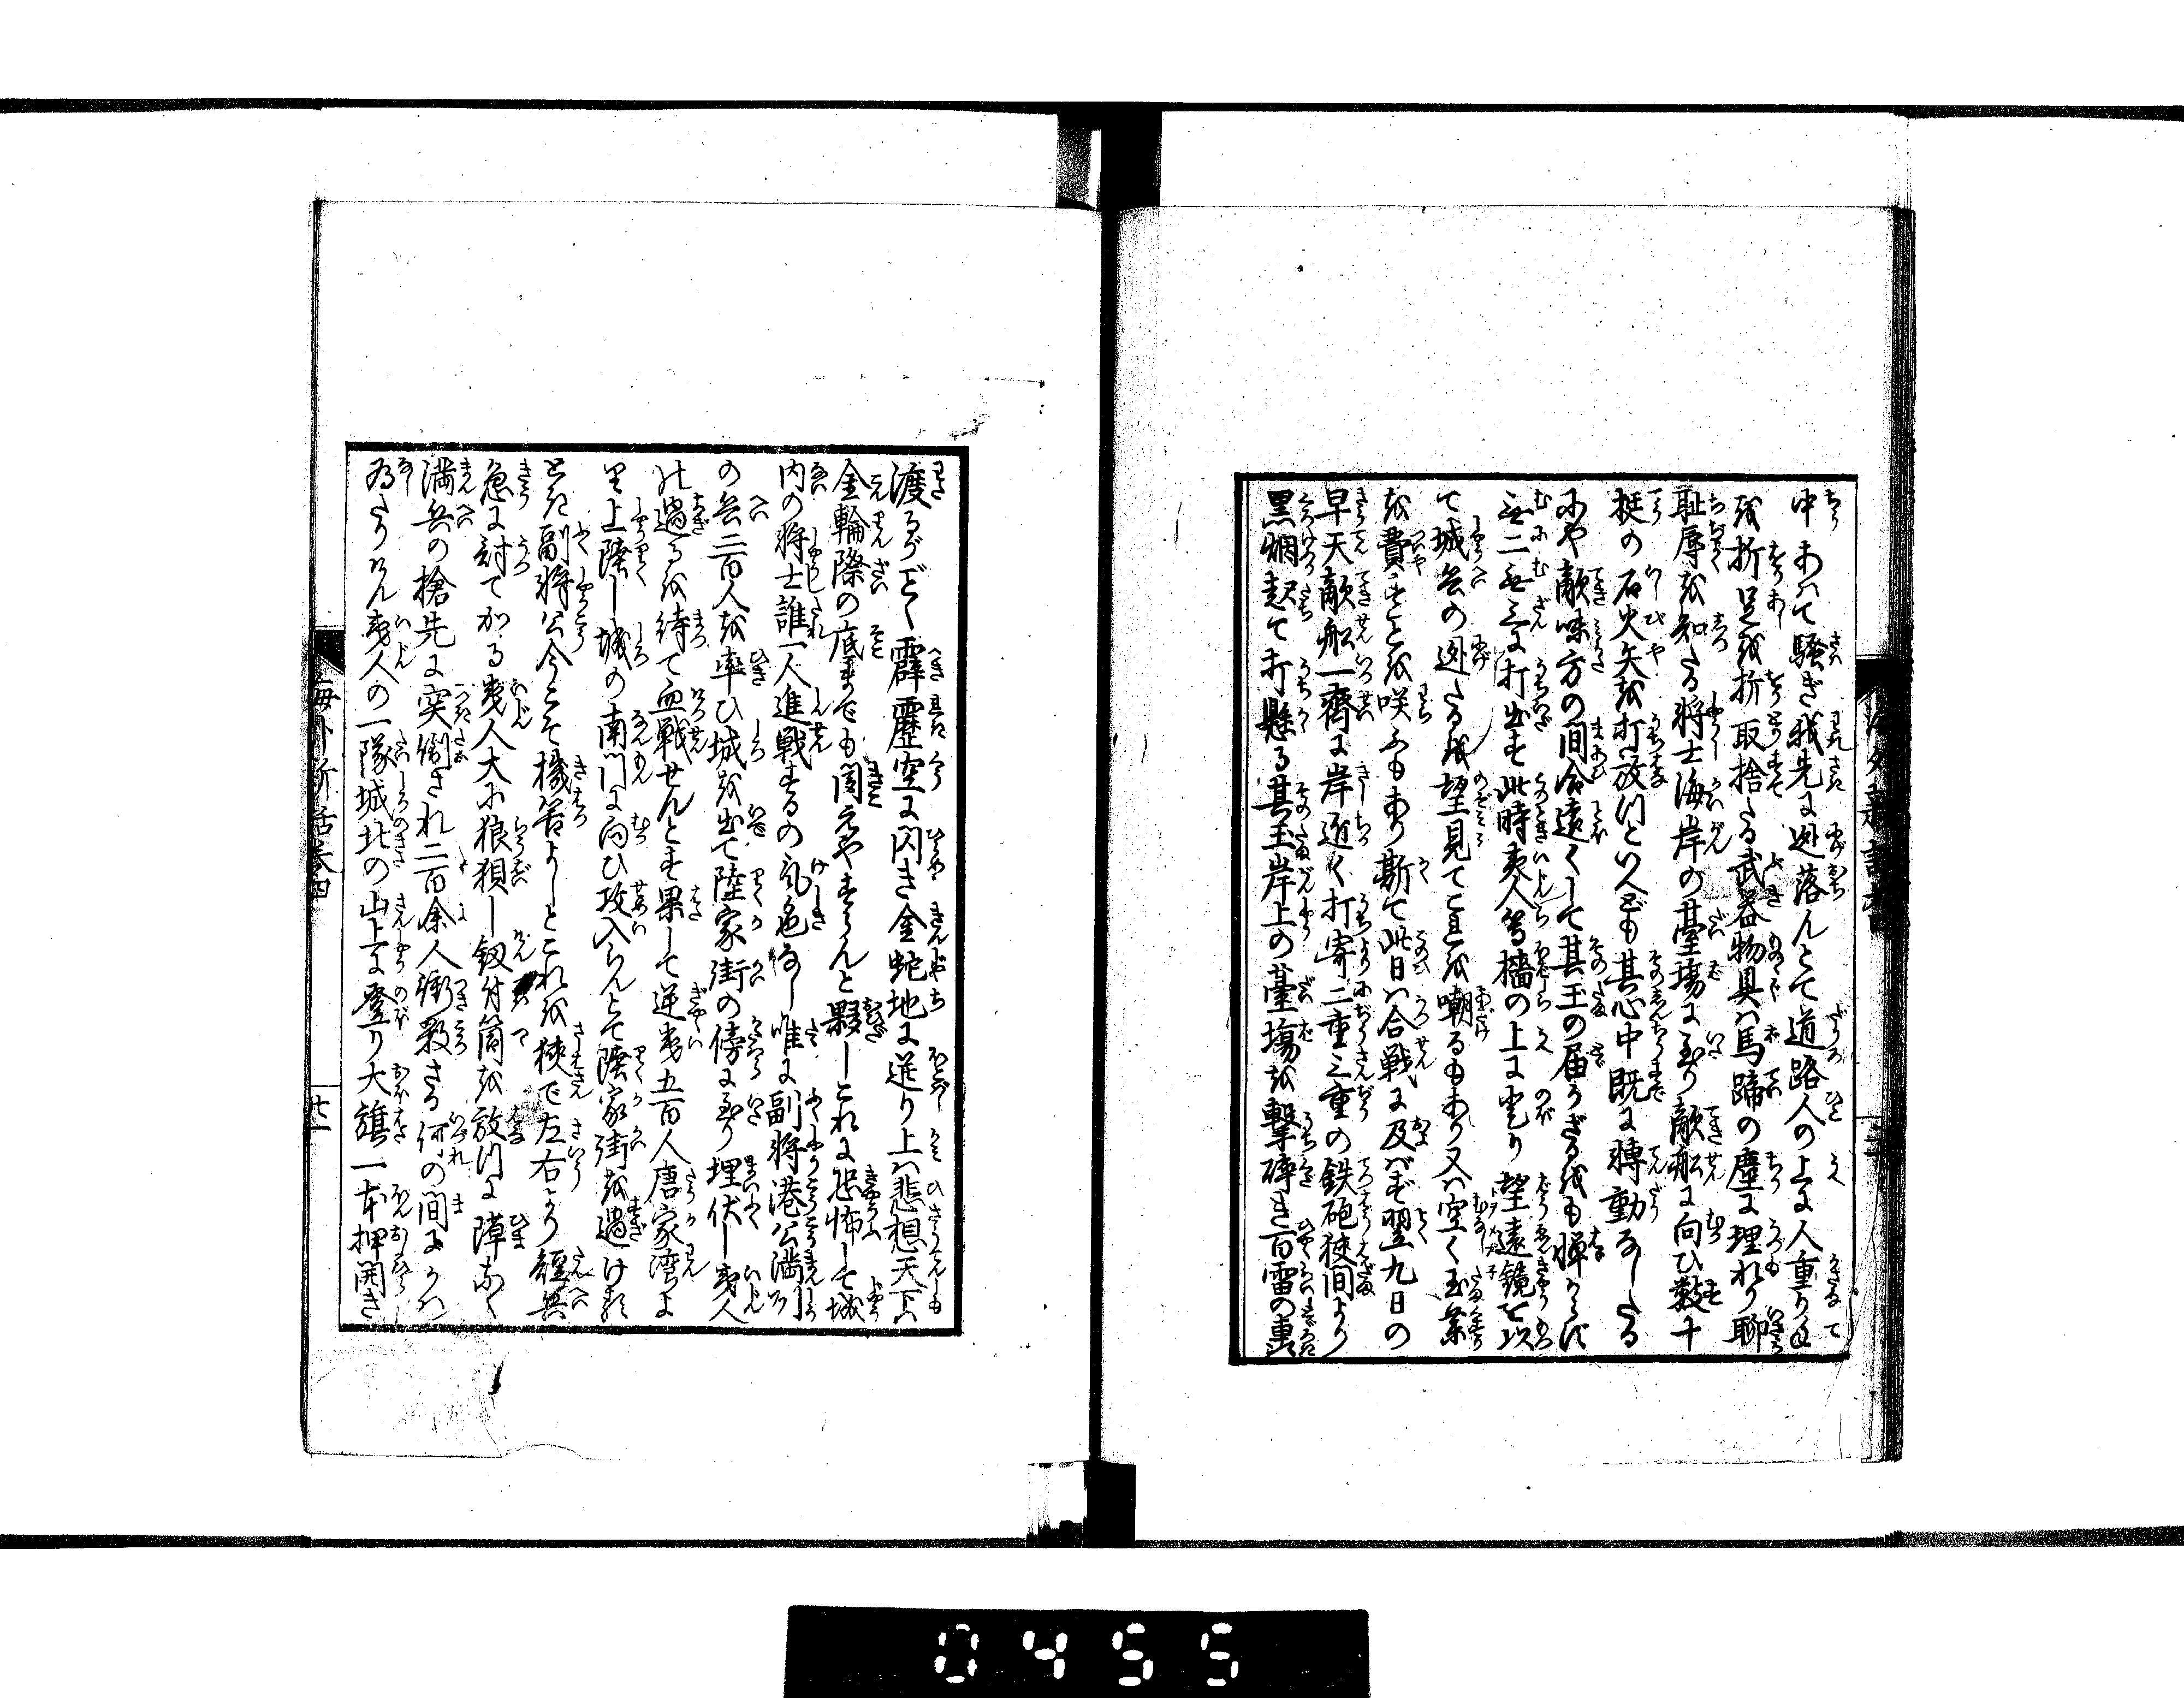 中あハて騒ぎ我先に迯落んとて道路人の上に人重りて
を折足を折取捨たる武器物具ハ馬蹄の塵に埋れり聊
耻辱を知たる将士海岸の臺塲に至り敵船に向ひ数十
挺の石火矢を打放つといへども其心中既に轉動なしたる
にや敵味方の間合遠くして其玉の届かざるをも憚からず
無二無三に打出す此時夷人等檣の上に登り望遠鏡を以
て城兵の迯たるを望見てこれを嘲るもあり又ハ空く玉薬
を費すことを咲ふもあり斯て此日ハ合戦に及バず翌九日の
早天敵船一齊に岸近く打寄二重三重の鉄砲狭間より
黒烟起て打懸る其玉岸上の臺塲を撃碎き百雷の轟
渡るがごく霹靂空に閃き金蛇地に迸り上ハ悲想天下ハ
金輪際の底までも聞えやすらんと夥しこれに恐怖して城
内の将士誰一人進戦するの気色なし唯に副将港公満洲
の兵二百人を率ひ城を出て陸家街の傍に至り埋伏し夷人
の過るを待て血戦せんとす果して逆夷五百人唐家湾よ
り上陸し城の南門に向ひ攻入らんとて陸家街を過けるほ
どに副将公今こそ機昔よしとこれを狹で左右より短兵
急に討てかゝる夷人大に狼狽し釼付筒を放つに隙なく
満兵の槍先に突倒され二百余人衝殺さる何の間にかハ
為たりけん夷人の一隊城北の山上に登り大旗一本押開き
海外新話巻四
廿一